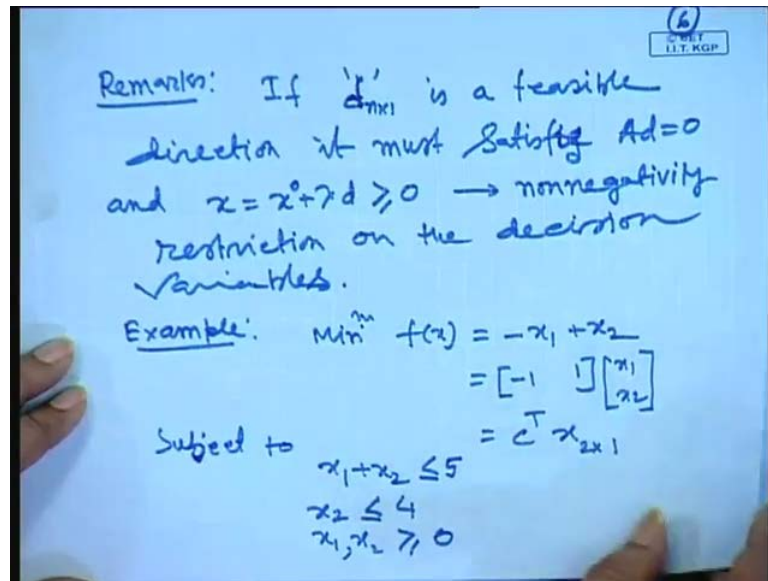 6
© CET
I.I.T. KGP
Remarks: If 'd'nx1 is a feasible
direction it must Satisfy Ad=0
and x = x⁰+λd ≥ 0 → nonnegativity
restriction on the decision
Variables.
Example: Minᵐ f(x) = -x₁ + x₂
= [-1 1] [x₁ x₂]
Subject to = cᵀ x₂ₓ₁
x₁+x₂ ≤ 5
x₂ ≤ 4
x₁, x₂ ≥ 0